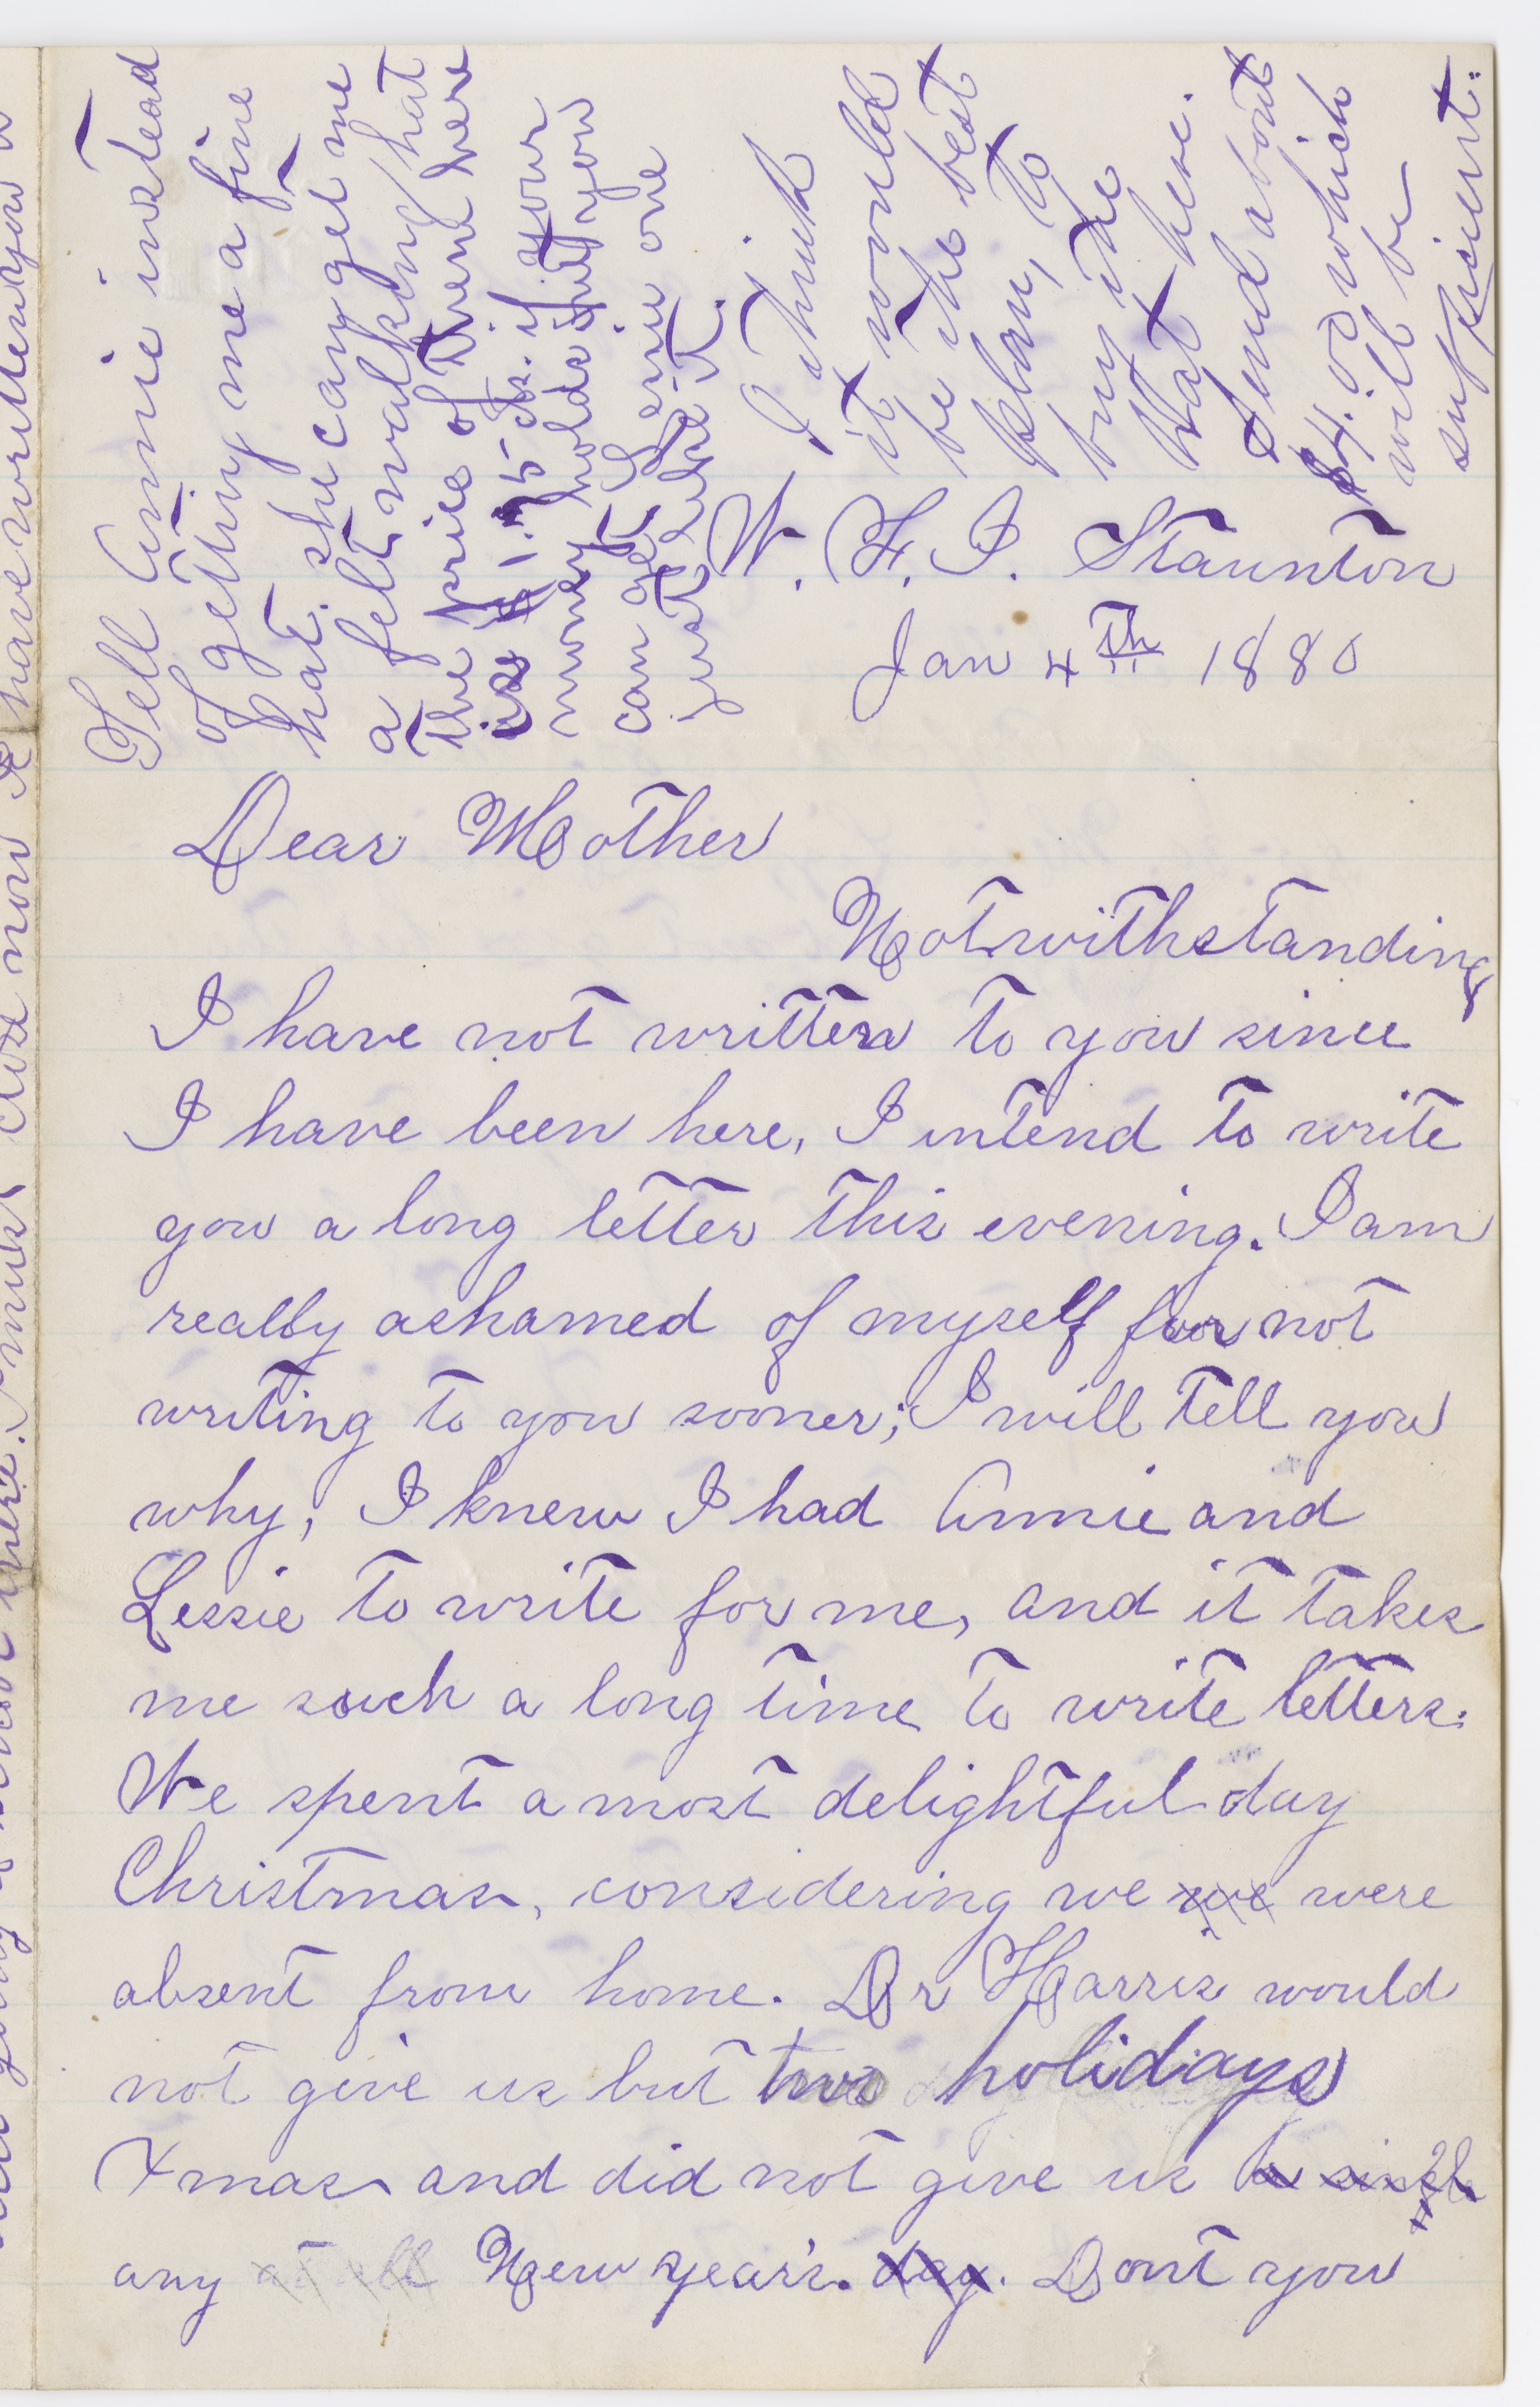 W. F. I. Staunton
Jan 4th 1880
Dear Mother
Notwithstanding
I have not written to you since
I have been here, I intend to write
you a long letter this evening. I am
really ashamed of myself for not
writing to you sooner; I will tell you
why; I knew I had Annie and
Lessie to write for me, and it takes
me such a long time to write letters.
We spent a most delightful day
Christmas, considering we we were
absent from home. Dr Harris would
not give us but two holidays
Xmas and did not give us a single
any at all New year's. day. Dont you
Tell Annie instead
of getting me a fine
hat. she can get me
a felt walking hat
the price of them here
is $1.75 cts. if your
money holds out you
can get Genie one
just like it.
I think
it would
be the best
plan, to
buy the
Hat here.
Send about
$4.00 which
will be
sufficient.
have written you a
close now I
I must